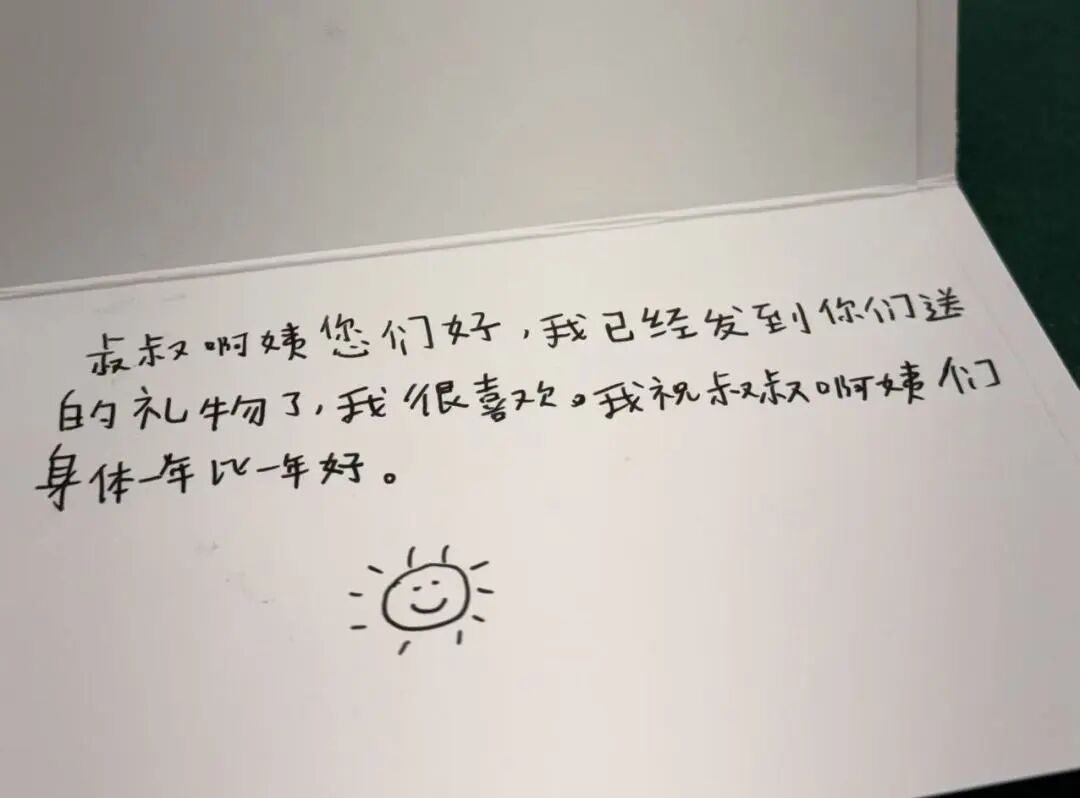 叔叔啊姨您们好，我已经发到你们送
的礼物了，我很喜欢。我祝叔叔啊姨们
身体一年比一年好。